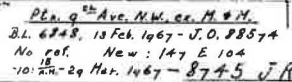 Ptn. 9th Ave. N.W., ex. M. & M.
B.L. 6848, 13 Feb. 1967 - J.O. 88574
No ref. New: 147 E 104
-10: 18 A.M. - 29 Mar. 1967 - 8745 J R